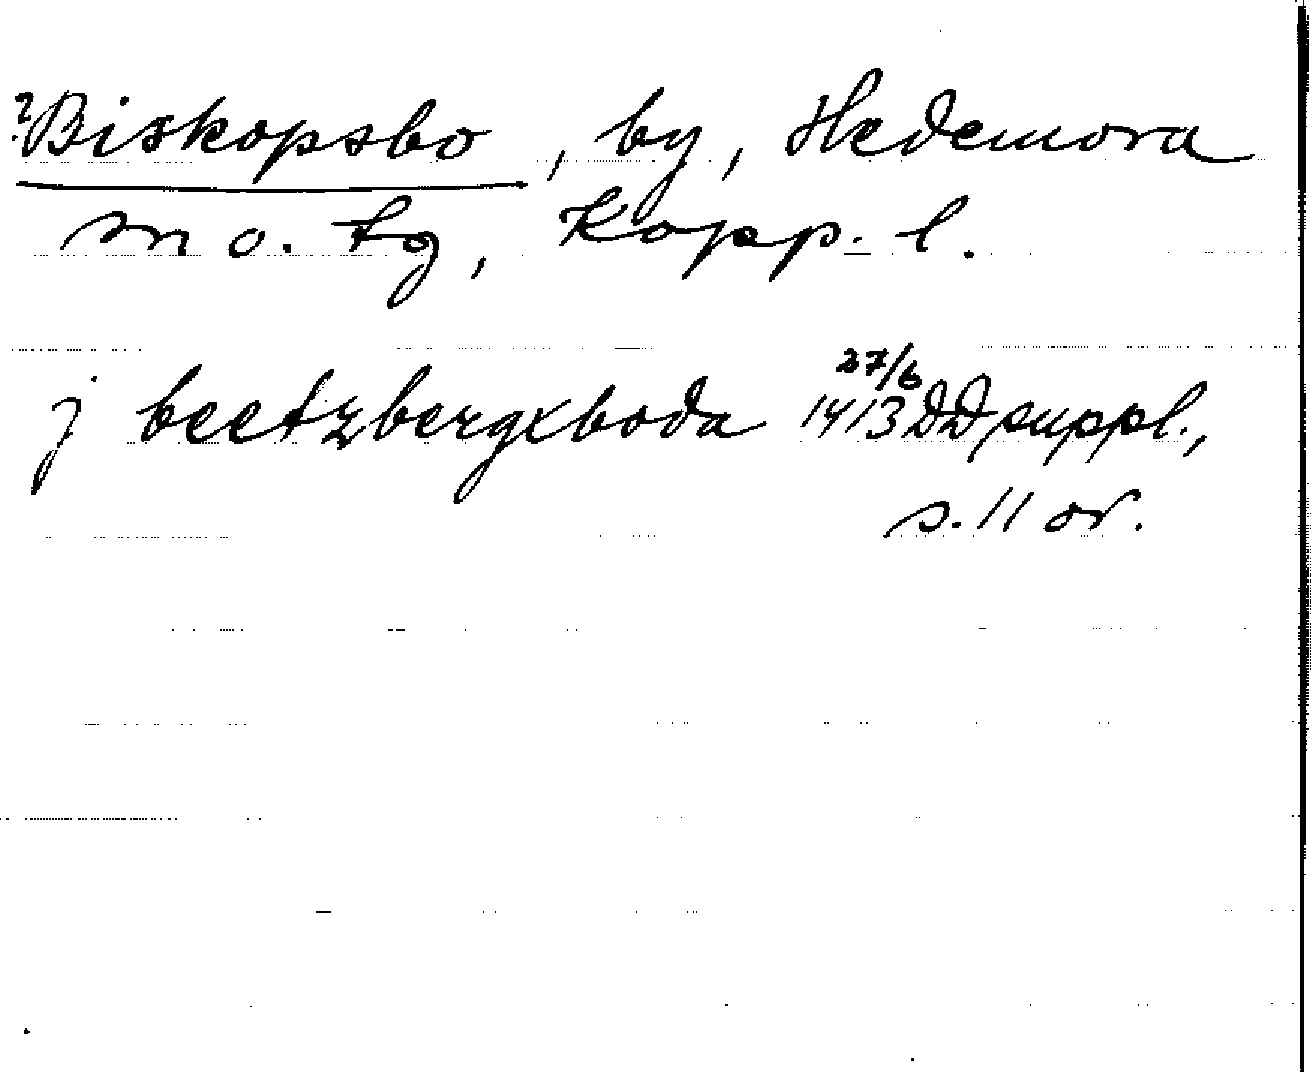 ?Biskopsbo, by, Hedemora
sn o. tg, Kopp. l.
27/6
j beetzbergxboda 1413 DD suppl.,
s. 11 or.